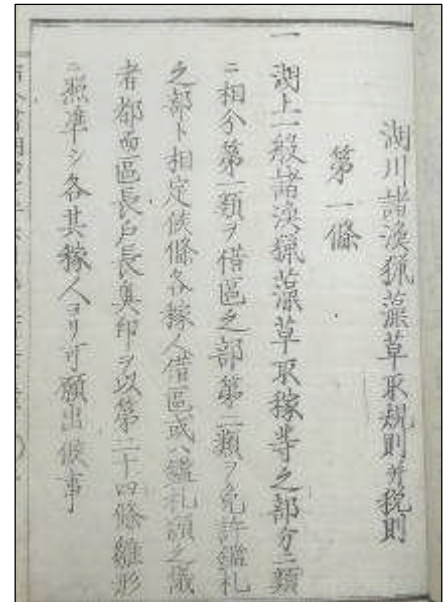 湖川諸漁猟藻草取規則并税則
第一條
一 湖上一般諸漁猟藻草取稼等之部分二類
ニ相分第一類ヲ借區之部第二類ヲ免許鑑札
之部ト相定候條各稼人借區或ハ鑑札願之儀
者都而區長戸長奥印ヲ以第二十四條雛形
ニ照準シ各其稼人ヨリ可願出候事